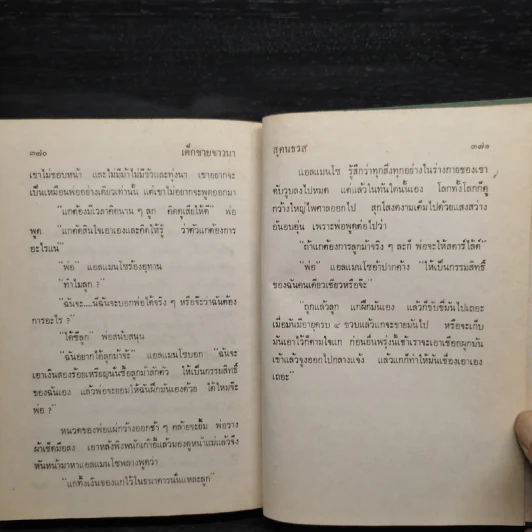 ๓๗๐ เด็กชายชาวนา
เขาไม่ชอบหน้า และไม่มีม้าไม่มีวัวและทุ่งนา เขาอยากจะ
เป็นเหมือนพ่ออย่างเดียวเท่านั้น แต่เขาไม่อยากจะพูดออกมา
"แกต้องมีเวลาคิดนาน ๆ ลูก คิดดูเสียให้ดี" พ่อ
พูด "แกตัดสินใจเอาเองและคิดให้รู้ ว่าตัวแกต้องการ
อะไรแน่"
"พ่อ" แอลแมนโซร้องอุทาน
"ทำไมลูก ?"
"ฉันจะ....นี่ฉันจะบอกพ่อได้จริง ๆ หรือจ๊ะว่าฉันต้อง
การอะไร ?"
"ได้ซีลูก" พ่อสนับสนุน
"ฉันอยากได้ลูกม้าจ้ะ" แอลแมนโซบอก "ฉันจะ
เอาเงินสองร้อยเหรียญนั่นซื้อลูกม้าสักตัว ให้เป็นกรรมสิทธิ์
ของฉันเอง แล้วพ่อจะยอมให้ฉันฝึกมันเองด้วย ได้ไหมจ๊ะ
พ่อ ?"
หนวดของพ่อแผ่กว้างออกช้า ๆ คล้ายจะยิ้ม พ่อวาง
ผ้าเช็ดมือลง เอาหลังพิงพนักเก้าอี้แล้วมองดูหน้าแม่แล้วจึง
หันหน้ามาหาแอลแมนโซพลางพูดว่า
"แกทิ้งเงินของแกไว้ในธนาคารนั่นแหละลูก"
สุคนธรส ๓๗๑
แอลแมนโซ รู้สึกว่าทุกสิ่งทุกอย่างในร่างกายของเขา
ดับวูบลงไปหมด แต่แล้วในทันใดนั้นเอง โลกทั้งโลกก็ดู
กว้างใหญ่ไพศาลออกไป สุกใสงดงามเต็มไปด้วยแสงสว่าง
อันอบอุ่น เพราะพ่อพูดต่อไปว่า
"ถ้าแกต้องการลูกม้าจริง ๆ ละก็ พ่อจะให้สตาร์ไลต์"
"พ่อ" แอลแมนโซอ้าปากค้าง "ให้เป็นกรรมสิทธิ์
ของฉันคนเดียวเชียวหรือจ๊ะ"
"ถูกแล้วลูก แกฝึกมันเอง แล้วก็ขับขี่มันไปเถอะ
เมื่อมันมีอายุครบ ๔ ขวบแล้วแกจะขายมันไป หรือจะเก็บ
มันเอาไว้ก็ตามใจแก ก่อนอื่นพรุ่งนี้เช้าเราจะเอาเชือกผูกมัน
เข้าแล้วจูงออกไปกลางแจ้ง แล้วแกก็ทำให้มันเชื่องเอาเอง
เถอะ"